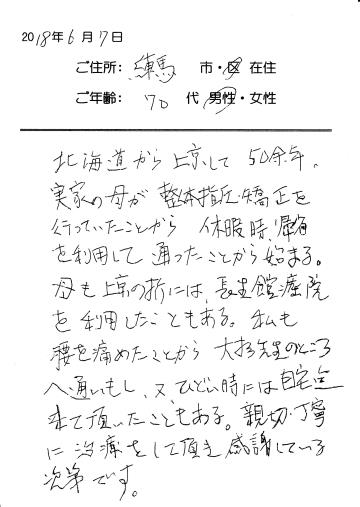 2018年6月7日
ご住所: 練馬 市・区 在住
ご年齢: 70 代 男性・女性
北海道から上京して 50余年。
実家の母が 整体指圧・矯正を
行っていたことから 休暇時、帰省
を利用して 通ったことから始まる。
母も上京の折には、長生館療院
を利用したこともある。私も
腰を痛めたことから 大杉先生のところ
へ通いもし、又、ひどい時には自宅迄
来て頂いたこともある。親切・丁寧
に治療をして頂き感謝している
次第です。